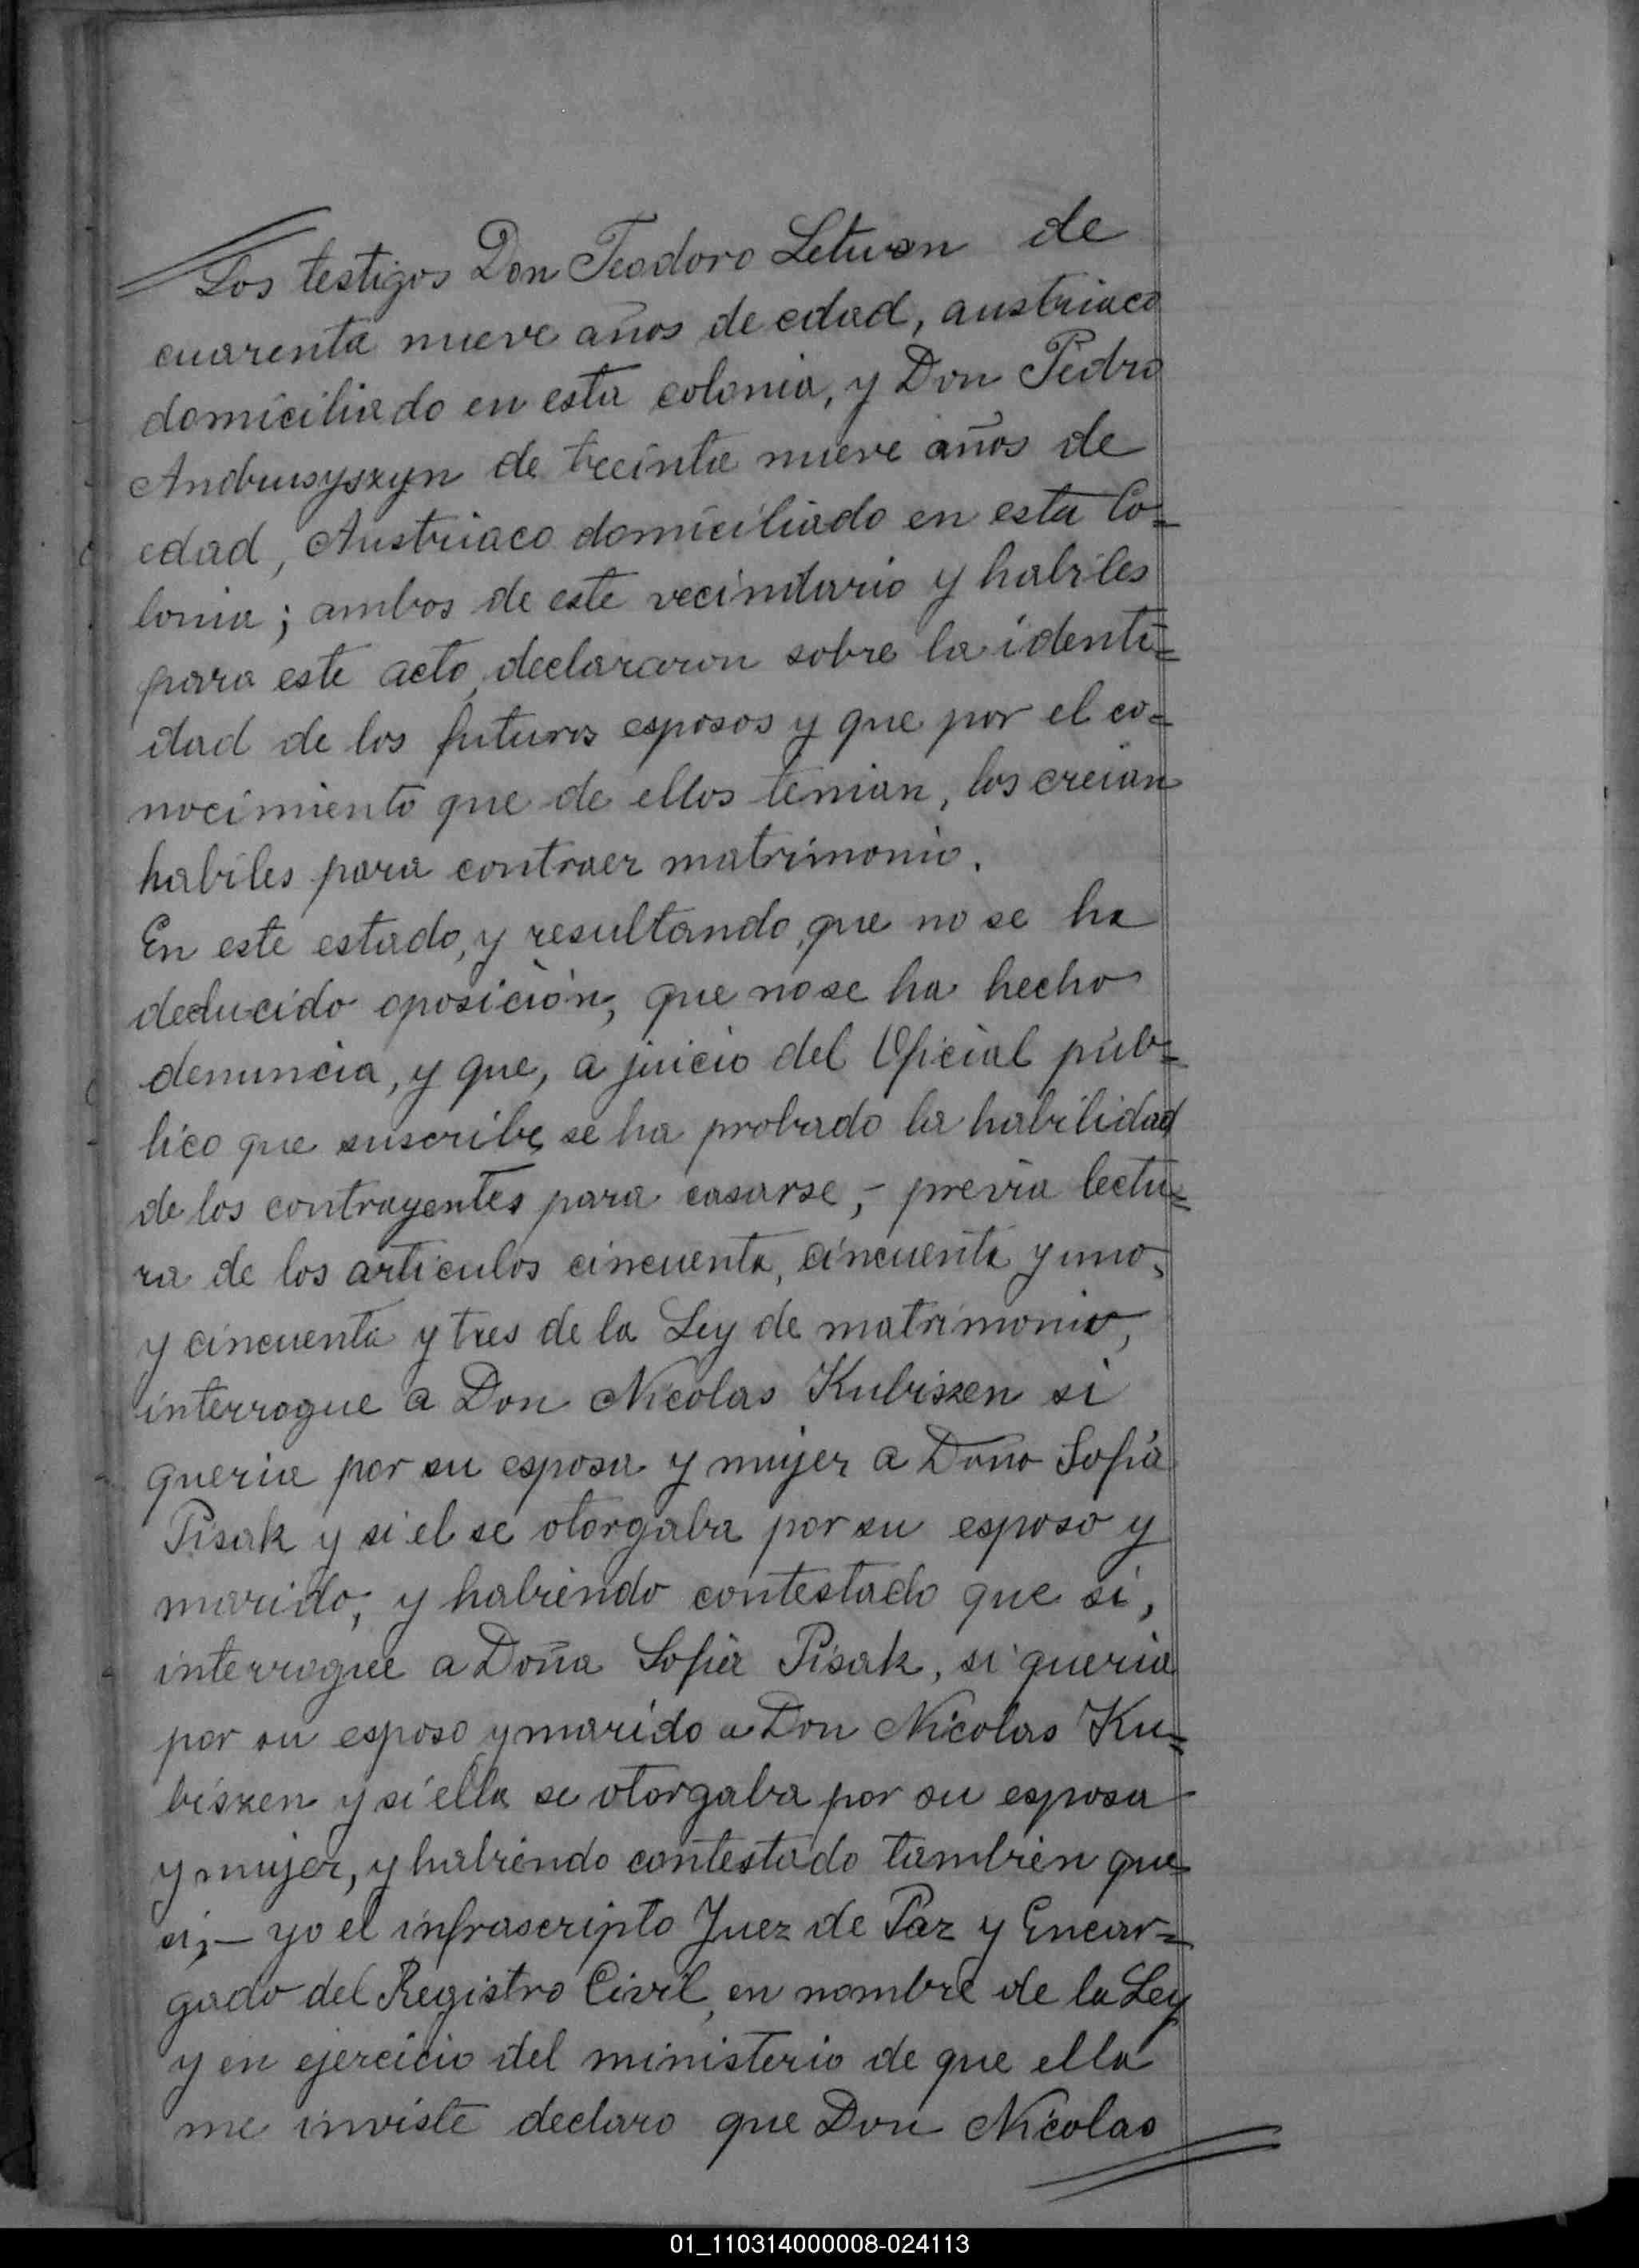 Los testigos Don Teodoro Letwon de
cuarenta nueve años de edad, austriaco
domiciliado en esta colonia, y Don Pedro
Andrusyszyn de treinta nueve años de
edad, Austriaco domiciliado en esta Co=
lonia; ambos de este vecindario y habiles
para este acto, declararon sobre la identi=
dad de los futuros esposos y que por el co=
nocimiento que de ellos tenian, los creian
habiles para contraer matrimonio.
En este estado, y resultando, que no se ha
deducido oposición, que no se ha hecho
denuncia, y que, a juicio del Oficial púb=
lico que suscribe, se ha probado la habilidad
de los contrayentes para casarse, - previa lectu=
ra de los articulos cincuenta, cincuenta y uno,
y cincuenta y tres de la Ley de matrimonio,
interrogue a Don Nicolas Kubiszen si
queria por su esposa y mujer a Doña Sofia
Pisak y si el se otorgaba por su esposo y
marido, y habiendo contestado que si,
interrogue a Doña Sofia Pisak, si queria
por su esposo y marido a Don Nicolas Ku=
biszen y si ella se otorgaba por su esposa
y mujer, y habiendo contestado tambien que
si, — yo el infrascripto Juez de Paz y Encar=
gado del Registro Civil, en nombre de la Ley
y en ejercicio del ministerio de que ella
me inviste declaro que Don Nicolas
01_110314000008-024113